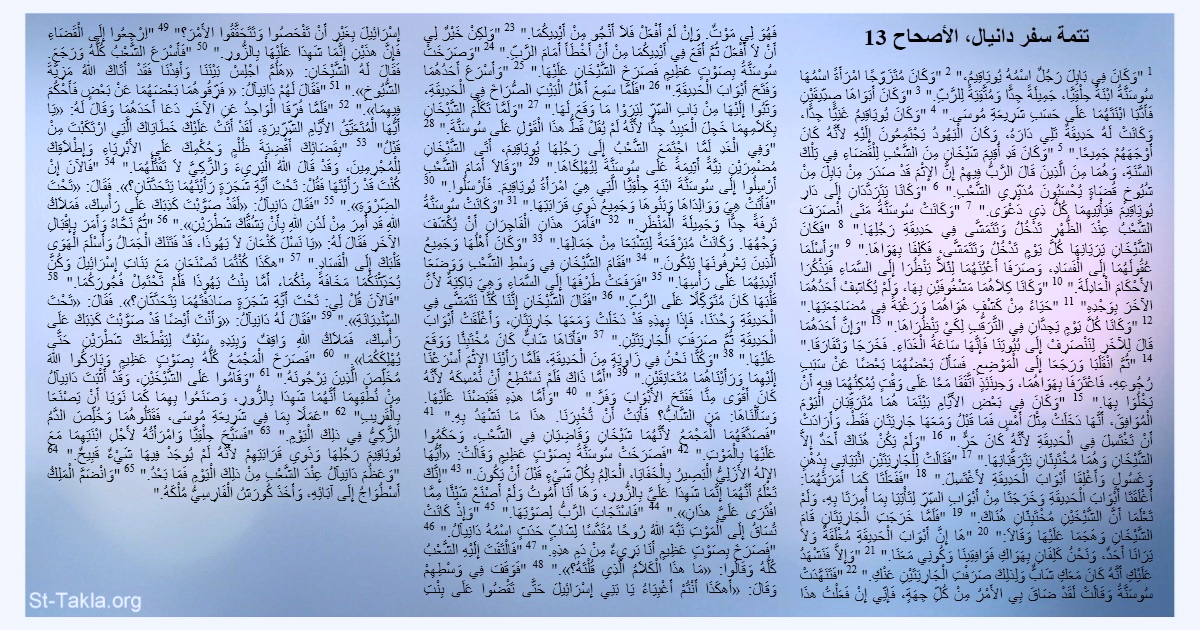 تتمة سفر دانيال، الأصحاح 13
1 "وَكَانَ فِي بَابِلَ رَجُلٌ اسْمُهُ يُويَاقِيمُ، 2 "وَكَانَ مُتَزَوِّجًا امْرَأَةً اسْمُهَا
سُوسَنَّةُ ابْنَةُ حِلْقِيَّا، جَمِيلَةٌ جِدًّا وَمُتَّقِيَةٌ لِلرَّبِّ. 3 "وَكَانَ أَبَوَاهَا صِدِّيقَيْنِ
فَأَدَّبَا ابْنَتَهُمَا عَلَى حَسَبِ شَرِيعَةِ مُوسَى. 4 "وَكَانَ يُويَاقِيمُ غَنِيًّا جِدًّا،
وَكَانَتْ لَهُ حَدِيقَةٌ تَلِي دَارَهُ، وَكَانَ الْيَهُودُ يَجْتَمِعُونَ إِلَيْهِ لأَنَّهُ كَانَ
أَوْجَهَهُمْ جَمِيعًا. 5 "وَكَانَ قَدْ أُقِيمَ شَيْخَانِ مِنَ الشَّعْبِ لِلْقَضَاءِ فِي تِلْكَ
السَّنَةِ، وَهُمَا مِنَ الَّذِينَ قَالَ الرَّبُّ فِيهِمْ إِنَّ الإِثْمَ قَدْ صَدَرَ مِنْ بَابِلَ مِنْ
شُيُوخٍ قُضَاةٍ يُحْسَبُونَ مُدَبِّرِي الشَّعْبِ. 6 "وَكَانَا يَتَرَدَّدَانِ إِلَى دَارِ
يُويَاقِيمَ فَيَأْتِيهِمَا كُلُّ ذِي دَعْوَى. 7 "وَكَانَتْ سُوسَنَّةُ مَتَى انْصَرَفَ
الشَّعْبُ عِنْدَ الظُّهْرِ تَدْخُلُ وَتَتَمَشَّى فِي حَدِيقَةِ رَجُلِهَا. 8 "فَكَانَ
الشَّيْخَانِ يَرَيَانِهَا كُلَّ يَوْمٍ تَدْخُلُ وَتَتَمَشَّى، فَكَلِفَا بِهَوَاهَا. 9 "وَأَسْلَمَا
عُقُولَهُمَا إِلَى الْفَسَادِ، وَصَرَفَا أَعْيُنَهُمَا لِئَلاَّ يَنْظُرَا إِلَى السَّمَاءِ فَيَذْكُرَا
الأَحْكَامَ الْعَادِلَةَ. 10 "وَكَانَا كِلاَهُمَا مَشْغُوفَيْنِ بِهَا، وَلَمْ يُكَاشِفْ أَحَدُهُمَا
الآخَرَ بِوَجْدِهِ 11 "حَيَاءً مِنْ كَشْفِ هَوَاهُمَا وَرَغْبَةً فِي مُضَاجَعَتِهَا.
12 "وَكَانَا كُلَّ يَوْمٍ يَجِدَّانِ فِي التَّرَقُّبِ لِكَيْ يَنْظُرَاهَا. 13 "وَإِنَّ أَحَدَهُمَا
قَالَ لِلآخَرِ لِنَنْصَرِفْ إِلَى بُيُوتِنَا فَإِنَّهَا سَاعَةُ الْغَدَاءِ. فَخَرَجَا وَتَفَارَقَا.
14 "ثُمَّ انْقَلَبَا وَرَجَعَا إِلَى الْمَوْضِعِ فَسَأَلَ بَعْضُهُمَا بَعْضًا عَنْ سَبَبِ
رُجُوعِهِ، فَاعْتَرَفَا بِهَوَاهُمَا، وَحِينَئِذٍ اتَّفَقَا مَعًا عَلَى وَقْتٍ يُمْكِنُهُمَا فِيهِ أَنْ
يَخْلُوَا بِهَا. 15 "وَكَانَ فِي بَعْضِ الأَيَّامِ بَيْنَمَا هُمَا مُتَرَقِّبَانِ الْيَوْمَ
الْمُوَافِقَ، أَنَّهَا دَخَلَتْ مِثْلَ أَمْسِ فَمَا قَبْلُ وَمَعَهَا جَارِيَتَانِ فَقَطْ، وَأَرَادَتْ
أَنْ تَغْتَسِلَ فِي الْحَدِيقَةِ لأَنَّهُ كَانَ حَرٌّ. 16 "وَلَمْ يَكُنْ هُنَاكَ أَحَدٌ إِلاَّ
الشَّيْخَانِ وَهُمَا مُخْتَبِئَانِ يَتَرَقَّبَانِهَا. 17 "فَقَالَتْ لِلْجَارِيَتَيْنِ ائْتِيَانِي بِدُهْنٍ
وَغَسُولٍ وَأَغْلِقَا أَبْوَابَ الْحَدِيقَةِ لأَغْتَسِلَ. 18 "فَفَعَلَتَا كَمَا أَمَرَتْهُمَا:
أَغْلَقَتَا أَبْوَابَ الْحَدِيقَةِ وَخَرَجَتَا مِنْ أَبْوَابِ السِّرِّ لِتَأْتِيَا بِمَا أَمَرَتَا بِهِ، وَلَمْ
تَعْلَمَا أَنَّ الشَّيْخَيْنِ مُخْتَبِئَانِ هُنَاكَ. 19 "فَلَمَّا خَرَجَتِ الْجَارِيَتَانِ قَامَ
الشَّيْخَانِ وَهَجَمَا عَلَيْهَا وَقَالاَ: 20 "هَا إِنَّ أَبْوَابَ الْحَدِيقَةِ مُغْلَقَةٌ وَلاَ
يَرَانَا أَحَدٌ، وَنَحْنُ كَلِفَانِ بِهَوَاكِ فَوَافِقِينَا وَكُونِي مَعَنَا 21 "وَإِلاَّ فَنَشْهَدُ
عَلَيْكِ أَنَّهُ كَانَ مَعَكِ شَابٌّ وَلِذلِكِ صَرَفْتِ الْجَارِيَتَيْنِ عَنْكِ. 22 "فَتَنَهَّدَتْ
سُوسَنَّةُ وَقَالَتْ لَقَدْ ضَاقَ بِي الأَمْرُ مِنْ كُلِّ جِهَةٍ، فَإِنِّي إِنْ فَعَلْتُ هذَا
فَهُوَ لِي مَوْتٌ. وَإِنْ لَمْ أَفْعَلْ فَلاَ أَنْجُو مِنْ أَيْدِيكُمَا. 23 "وَلكِنْ خَيْرٌ لِي
أَنْ لاَ أَفْعَلَ ثُمَّ أَقَعَ فِي أَيْدِيكُمَا مِنْ أَنْ أَخْطَأَ أَمَامَ الرَّبِّ. 24 "وَصَرَخَتْ
سُوسَنَّةُ بِصَوْتٍ عَظِيمٍ فَصَرَخَ الشَّيْخَانِ عَلَيْهَا. 25 "وَأَسْرَعَ أَحَدُهُمَا
وَفَتَحَ أَبْوَابَ الْحَدِيقَةِ. 26 "فَلَمَّا سَمِعَ أَهْلُ الْبَيْتِ الصُّرَاخَ فِي الْحَدِيقَةِ،
وَثَبُوا إِلَيْهَا مِنْ بَابِ السِّرِّ لِيَرَوْا مَا وَقَعَ لَهَا. 27 "وَلَمَّا تَكَلَّمَ الشَّيْخَانِ
بِكَلاَمِهِمَا خَجِلَ الْعَبِيدُ جِدًّا لأَنَّهُ لَمْ يُقَلْ قَطُّ هذَا الْقَوْلُ عَلَى سُوسَنَّةَ. 28
"وَفِي الْغَدِ لَمَّا اجْتَمَعَ الشَّعْبُ إِلَى رَجُلِهَا يُويَاقِيمَ، أَتَى الشَّيْخَانِ
مُضْمِرَيْنِ نِيَّةً أَثِيمَةً عَلَى سُوسَنَّةَ لِيُهْلِكَاهَا. 29 "وَقَالاَ أَمَامَ الشَّعْبِ
أَرْسِلُوا إِلَى سُوسَنَّةَ ابْنَةِ حِلْقِيَّا الَّتِي هِيَ امْرَأَةُ يُويَاقِيمَ. فَأَرْسَلُوا. 30
"فَأَتَتْ هِيَ وَوَالِدَاهَا وَبَنُوهَا وَجَمِيعُ ذَوِي قَرَابَتِهَا. 31 "وَكَانَتْ سُوسَنَّةُ
تَرِفَةً جِدًّا وَجَمِيلَةَ الْمَنْظَرِ. 32 "فَأَمَرَ هذَانِ الْفَاجِرَانِ أَنْ يُكْشَفَ
وَجْهُهَا. وَكَانَتْ مُبَرْقَعَةً لِيَشْبَعَا مِنْ جَمَالِهَا. 33 "وَكَانَ أَهْلُهَا وَجَمِيعُ
الَّذِينَ يَعْرِفُونَهَا يَبْكُونَ. 34 "فَقَامَ الشَّيْخَانِ فِي وَسْطِ الشَّعْبِ وَوَضَعَا
أَيْدِيَهُمَا عَلَى رَأْسِهَا. 35 "فَرَفَعَتْ طَرْفَهَا إِلَى السَّمَاءِ وَهِيَ بَاكِيَةٌ لأَنَّ
قَلْبَهَا كَانَ مُتَوَكِّلًا عَلَى الرَّبِّ. 36 "فَقَالَ الشَّيْخَانِ إِنَّنَا كُنَّا نَتَمَشَّى فِي
الْحَدِيقَةِ وَحْدَنَا، فَإِذَا بِهذِهِ قَدْ دَخَلَتْ وَمَعَهَا جَارِيَتَانِ، وَأَغْلَقَتْ أَبْوَابَ
الْحَدِيقَةِ ثُمَّ صَرَفَتِ الْجَارِيَتَيْنِ. 37 "فَأَتَاهَا شَابٌّ كَانَ مُخْتَبِئًا وَوَقَعَ
عَلَيْهَا. 38 "وَكُنَّا نَحْنُ فِي زَاوِيَةٍ مِنَ الْحَدِيقَةِ، فَلَمَّا رَأَيْنَا الإِثْمَ أَسْرَعْنَا
إِلَيْهِمَا وَرَأَيْنَاهُمَا مُتَعَانِقَيْنِ. 39 "أَمَّا ذَاكَ فَلَمْ نَسْتَطِعْ أَنْ نُمْسِكَهُ لأَنَّهُ
كَانَ أَقْوَى مِنَّا فَفَتَحَ الأَبْوَابَ وَفَرَّ. 40 "وَأَمَّا هذِهِ فَقَبَضْنَا عَلَيْهَا.
وَسَأَلْنَاهَا: مَنِ الشَّابُّ؟ فَأَبَتْ أَنْ تُخْبِرَنَا. هذَا مَا نَشْهَدُ بِهِ. 41
"فَصَدَّقَهُمَا الْمَجْمَعُ لأَنَّهُمَا شَيْخَانِ وَقَاضِيَانِ فِي الشَّعْبِ، وَحَكَمُوا
عَلَيْهَا بِالْمَوْتِ. 42 "فَصَرَخَتْ سُوسَنَّةُ بِصَوْتٍ عَظِيمٍ وَقَالَتْ: «أَيُّهَا
الإِلهُ الأَزَلِيُّ الْبَصِيرُ بِالْخَفَايَا، الْعَالِمُ بِكُلِّ شَيْءٍ قَبْلَ أَنْ يَكُونَ. 43 "إِنَّكَ
تَعْلَمُ أَنَّهُمَا إِنَّمَا شَهِدَا عَلَيَّ بِالزُّورِ، وَهَا أَنَا أَمُوتُ وَلَمْ أَصْنَعْ شَيْئًا مِمَّا
افْتَرَى عَلَيَّ هذَانِ». 44 "فَاسْتَجَابَ الرَّبُّ لِصَوْتِهَا. 45 "وَإِذْ كَانَتْ
تُسَاقُ إِلَى الْمَوْتِ نَبَّهَ اللهُ رُوحًا مُقَدَّسًا لِشَابٍّ حَدَثٍ اسْمُهُ دَانِيآلُ. 46
"فَصَرَخَ بِصَوْتٍ عَظِيمٍ أَنَا بَرِيءٌ مِنْ دَمِ هذِهِ. 47 "فَالْتَفَتَ إِلَيْهِ الشَّعْبُ
كُلُّهُ وَقَالُوا: «مَا هذَا الْكَلاَمُ الَّذِي قُلْتَهُ؟». 48 "فَوَقَفَ فِي وَسْطِهِمْ
وَقَالَ: «أَهكَذَا أَنْتُمْ أَغْبِيَاءُ يَا بَنِي إِسْرَائِيلَ حَتَّى تَقْضُوا عَلَى بِنْتِ
إِسْرَائِيلَ بِغَيْرِ أَنْ تَفْحَصُوا وَتَتَحَقَّقُوا الأَمْرَ؟ 49 "ارْجِعُوا إِلَى الْقَضَاءِ
فَإِنَّ هذَيْنِ إِنَّمَا شَهِدَا عَلَيْهَا بِالزُّورِ». 50 "فَأَسْرَعَ الشَّعْبُ كُلُّهُ وَرَجَعَ.
فَقَالَ لَهُ الشَّيْخَانِ: «هَلُمَّ اجْلِسْ بَيْنَنَا وَأَفِدْنَا فَقَدْ أَتَاكَ اللهُ مَزِيَّةَ
الشُّيُوخِ». 51 "فَقَالَ لَهُمْ دَانِيآلُ: « فَرِّقُوهُمَا بَعْضَهُمَا عَنْ بَعْضٍ فَأَحْكُمَ
فِيهِمَا». 52 "فَلَمَّا فُرِّقَا الْوَاحِدُ عَنِ الآخَرِ دَعَا أَحَدَهُمَا وَقَالَ لَهُ: «يَا
أَيُّهَا الْمُتَعَتِّقُ الأَيَّامِ الشِّرِّيرَةِ، لَقَدْ أَتَتْ عَلَيْكَ خَطَايَاكَ الَّتِي ارْتَكَبْتَ مِنْ
قَبْلُ 53 "بِقَضَائِكَ أَقْضِيَةَ ظُلْمٍ وَحُكْمِكَ عَلَى الأَبْرِيَاءِ وَإِطْلاَقِكَ
لِلْمُجْرِمِينَ، وَقَدْ قَالَ اللهُ الْبَرِيءَ وَالزَّكِيَّ لاَ تَقْتُلْهُمَا. 54 "فَالآنَ إِنْ
كُنْتَ قَدْ رَأَيْتَهَا فَقُلْ: تَحْتَ أَيَّةِ شَجَرَةٍ رَأَيْتَهُمَا يَتَحَدَّثَانِ؟». فَقَالَ: «تَحْتَ
الضِّرْوَةِ». 55 "فَقَالَ دَانِيآلُ: «لَقَدْ صَوَّبْتَ كَذِبَكَ عَلَى رَأْسِكَ، فَمَلاَكُ
اللهِ قَدْ أُمِرَ مِنْ لَدُنِ اللهِ بِأَنْ يَشُقَّكَ شَطْرَيْنِ». 56 "ثُمَّ نَحَّاهُ وَأَمَرَ بِإِقْبَالِ
الآخَرِ فَقَالَ لَهُ: «يَا نَسْلَ كَنْعَانَ لاَ يَهُوذَا، قَدْ فَتَنَكَ الْجَمَالُ وَأَسْلَمَ الْهَوَى
قَلْبَكَ إِلَى الْفَسَادِ. 57 "هكَذَا كُنْتُمَا تَصْنَعَانِ مَعَ بَنَاتِ إِسْرَائِيلَ وَكُنَّ
يُحَدِّثْنَكُمَا مَخَافَةً مِنْكُمَا، أَمَّا بِنْتُ يَهُوذَا فَلَمْ تَحْتَمِلْ فُجُورَكُمَا. 58
"فَالآنَ قُلْ لِي: تَحْتَ أَيَّةِ شَجَرَةٍ صَادَفْتَهُمَا يَتَحَدَّثَانِ؟». فَقَالَ: «تَحْتَ
السِّنْدِيَانَةِ». 59 "فَقَالَ لَهُ دَانِيآلُ: «وَأَنْتَ أَيْضًا قَدْ صَوَّبْتَ كَذِبَكَ عَلَى
رَأْسِكَ، فَمَلاَكُ اللهِ وَاقِفٌ وَبِيَدِهِ سَيْفٌ لِيَقْطَعَكَ شَطْرَيْنِ حَتَّى
يُهْلِكَكُمَا». 60 "فَصَرَخَ الْمَجْمَعُ كُلُّهُ بِصَوْتٍ عَظِيمٍ وَبَارَكُوا اللهَ
مُخَلِّصَ الَّذِينَ يَرْجُونَهُ. 61 "وَقَامُوا عَلَى الشَّيْخَيْنِ، وَقَدْ أَثْبَتَ دَانِيآلُ
مِنْ نُطْقِهِمَا أَنَّهُمَا شَهِدَا بِالزُّورِ، وَصَنَعُوا بِهِمَا كَمَا نَوَيَا أَنْ يَصْنَعَا
بِالْقَرِيبِ 62 "عَمَلًا بِمَا فِي شَرِيعَةِ مُوسَى، فَقَتَلُوهُمَا وَخُلِّصَ الدَّمُ
الزَّكِيُّ فِي ذلِكَ الْيَوْمِ. 63 "فَسَبَّحَ حِلْقِيَّا وَامْرَأَتُهُ لأَجْلِ ابْنَتِهِمَا مَعَ
يُويَاقِيمَ رَجُلِهَا وَذَوِي قَرَابَتِهِمْ لأَنَّهُ لَمْ يُوجَدْ فِيهَا شَيْءٌ قَبِيحٌ. 64
"وَعَظُمَ دَانِيآلُ عِنْدَ الشَّعْبِ مِنْ ذلِكَ الْيَوْمِ فَمَا بَعْدُ. 65 "وَانْضَمَّ الْمَلِكُ
أَسْطُوَاجُ إِلَى آبَائِهِ، وَأَخَذَ كُورَشُ الْفَارِسِيُّ مُلْكَهُ."
St-Takla.org